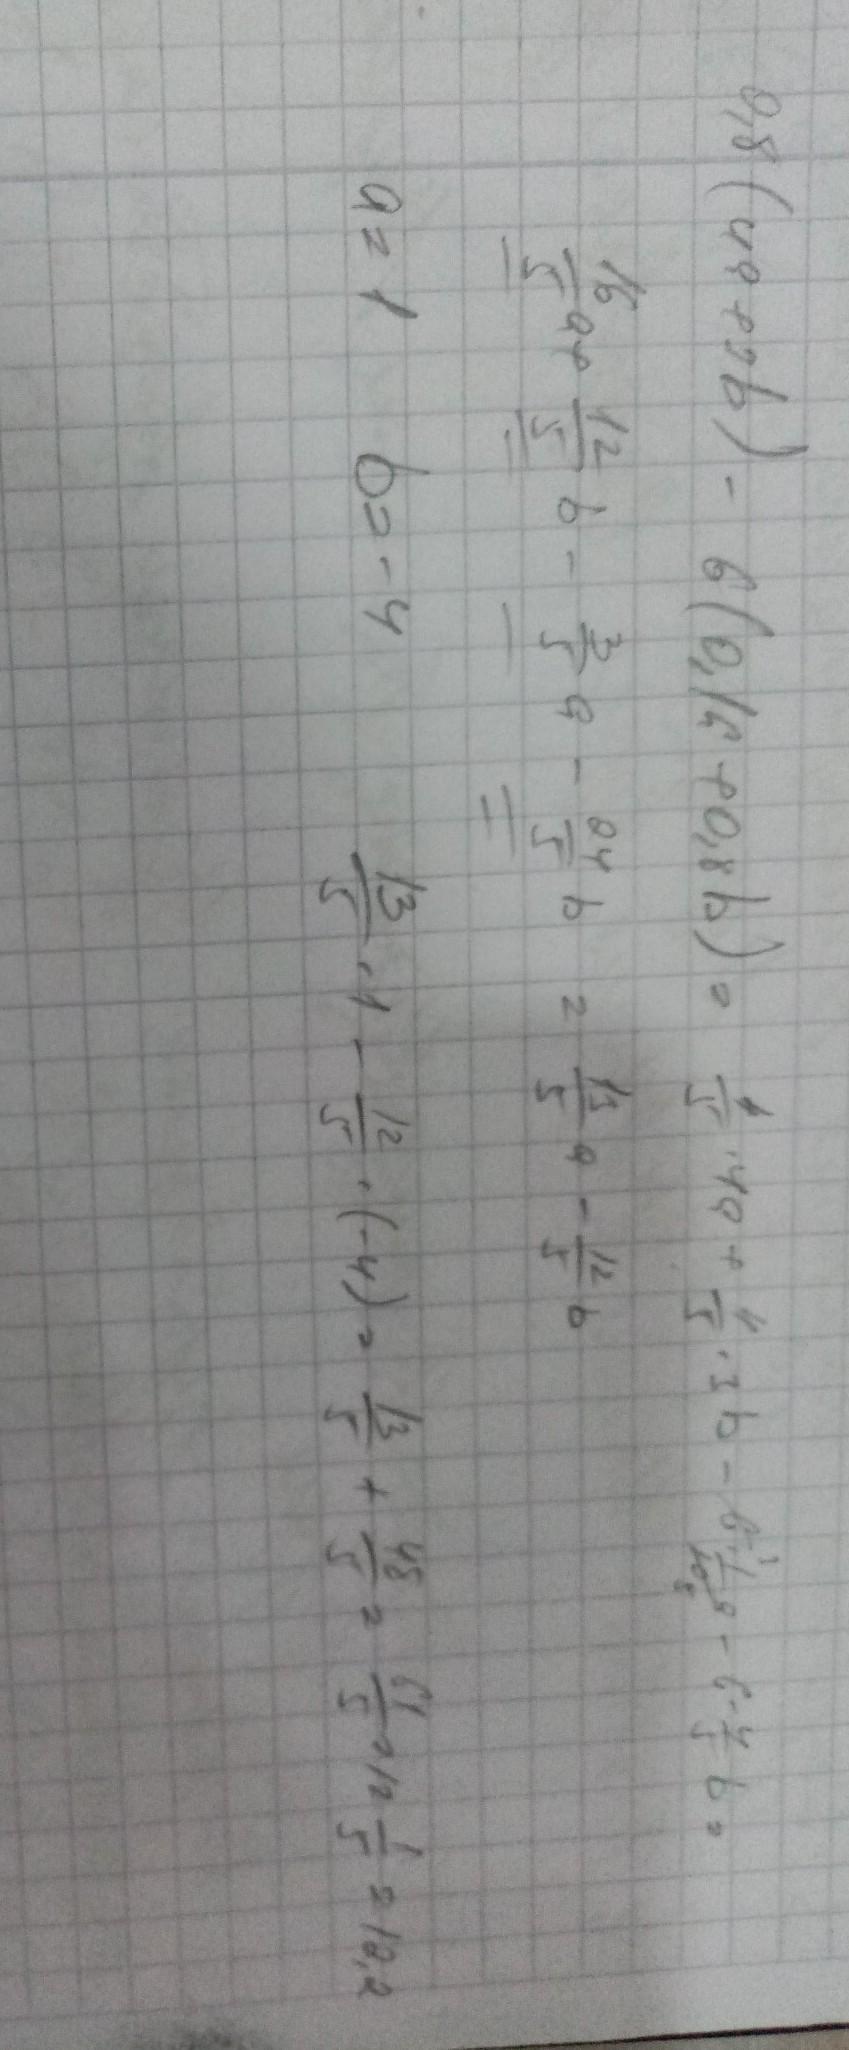 0,8(4a+3b) - 6(0,1a+0,8b) = 4/5 · 4a + 4/5 · 3b - 6 · 1/10 a - 6 · 4/5 b =
16/5 a + 12/5 b - 3/5 a - 24/5 b = 13/5 a - 12/5 b
a = 1 b = -4 13/5 · 1 - 12/5 · (-4) = 13/5 + 48/5 = 61/5 = 12 1/5 = 12,2